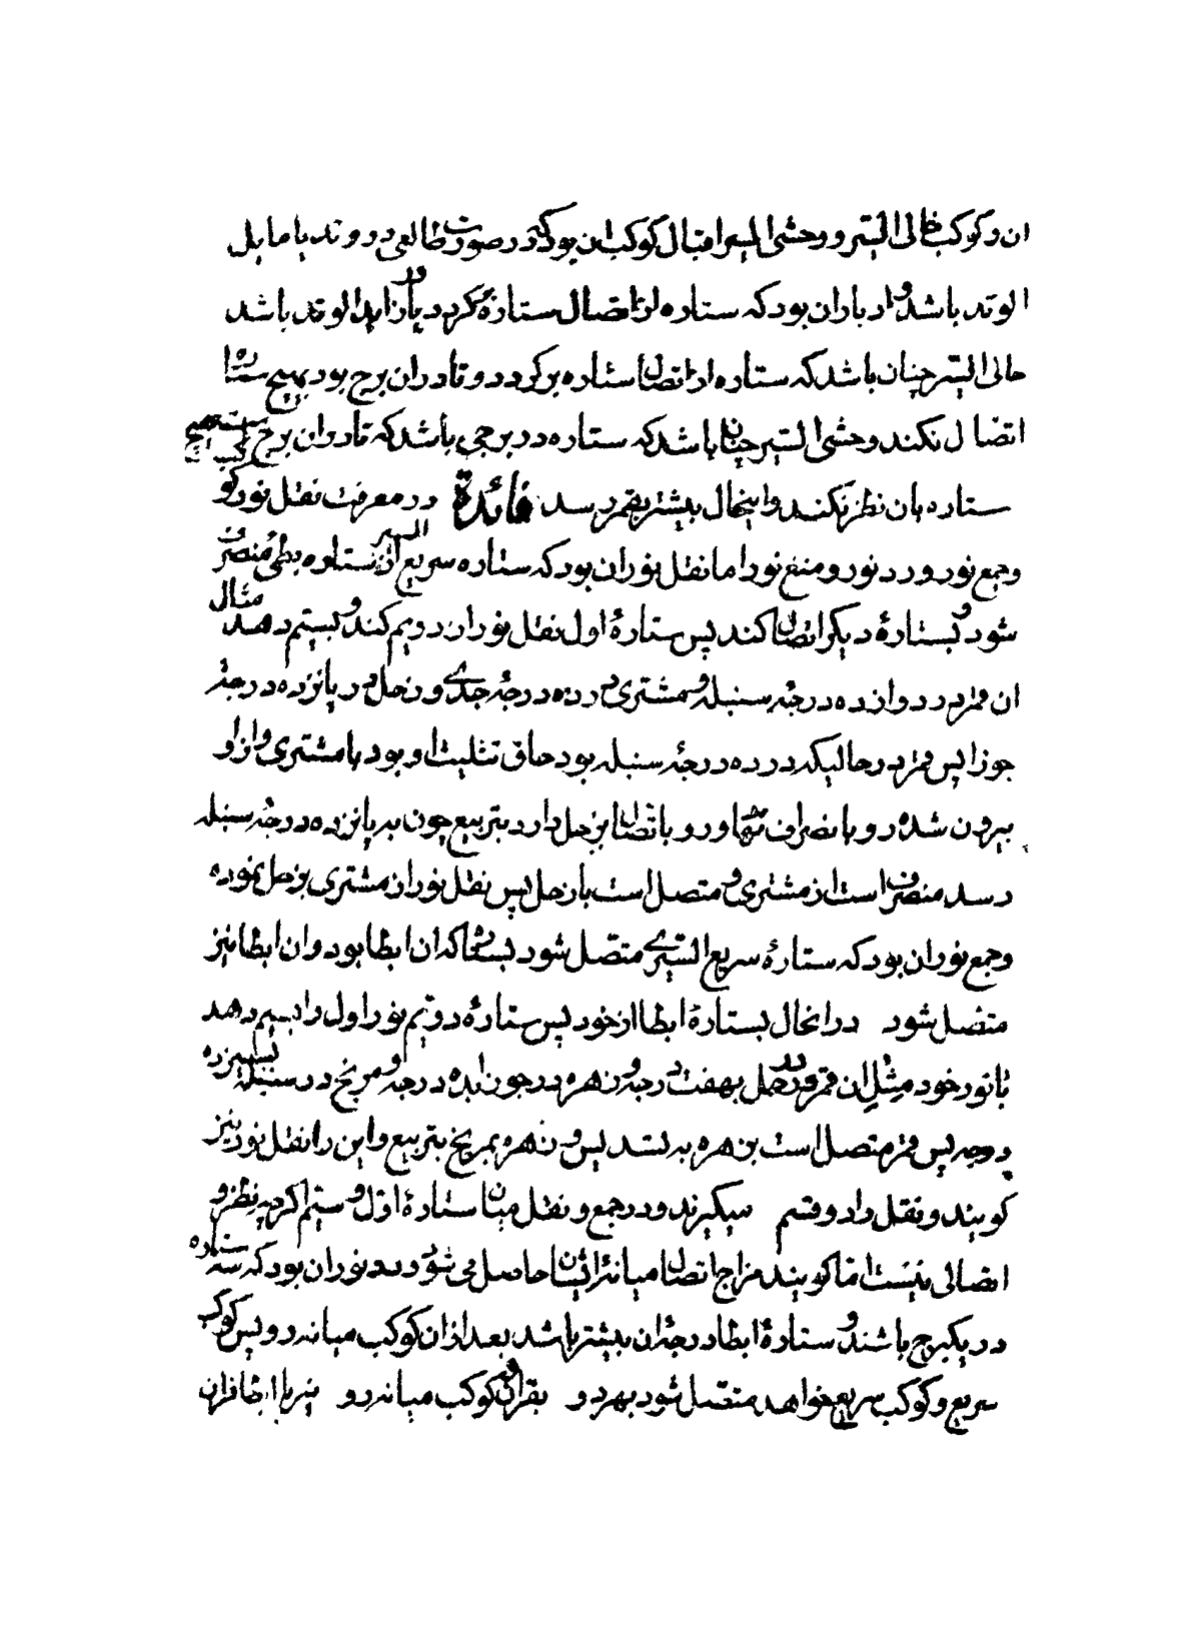 ان و کوکب خالی السیر و وحشی السیر اقبال کوکب ان بود که در صورت طالعی در وتد یا مایل
الوتد باشد و ادبار ان بود که ستاره از اتصال ستارهٔ کردد یا در زایل الوتد باشد
خالی السیر چنان باشد که ستاره از اتصال ستاره برکردد و تا در ان برج بود بهیچ ستاره
اتصال نکند وحشی السیر چنان باشد که ستاره در برجی باشد که تا در ان برج است هیچ کوکب
ستاره بان نظر نکند و اینحال بیشتر بقمر رسد فائدة در معرفت نقل نور و
وجمع نور و رد نور و منع نور اما نقل نور ان بود که ستاره سریع السیر از ستاره بطی منصرف
شود و بستارهٔ دیکر اتصال کند پس ستارهٔ اول نقل نور ان دویم کند و بسیم دهد مثال
ان قمر در دوازده درجهٔ سنبله و مشتری در ده درجهٔ جدی و زحل در پانزده درجهٔ
جوزا پس قمر در حالیکه در ده درجهٔ سنبله بود حاق تثلیث او بود با مشتری و از او
بیرون شده رو بانصراف نهاد و رو باتصال زحل دارد بتربیع چون به پانزده درجهٔ سنبله
رسد منصرف است از مشتری و متصل است با زحل پس نقل نور از مشتری بزحل نموده
وجمع نور ان بود که ستارهٔ سریع السیری متصل شود بستارهٔ که ان ابطا بود و ان ابطا نیز
متصل شود درانحال بستارهٔ ابطا از خود پس ستارهٔ دویم نور اول را بسیم دهد
با نور خود مثل ان قمر در حمل بهفت درجه و زهره در جوزا بده درجه و مریخ در سنبله بسیزده
درجه پس قمر متصل است بزهره به تسدیس و زهره بمریخ بتربیع و این را نقل نور نیز
کویند و نقل را دو قسم میکیرند و در جمع و نقل میان ستارهٔ اول و سیم اکرچه نظر و
اتصالی نیست اما کویند مزاج اتصال میانهٔ ایشان حاصل می شود و رد نور ان بود که سه ستاره
در یکبرج باشند و ستارهٔ ابطا درجهٔ ان بیشتر باشد بعد از ان کوکب میانه رو پس کوکب
سریع و کوکب سریع خواهد متصل شود بهر دو بقران و کوکب میانه رو نیز با ابطا قران